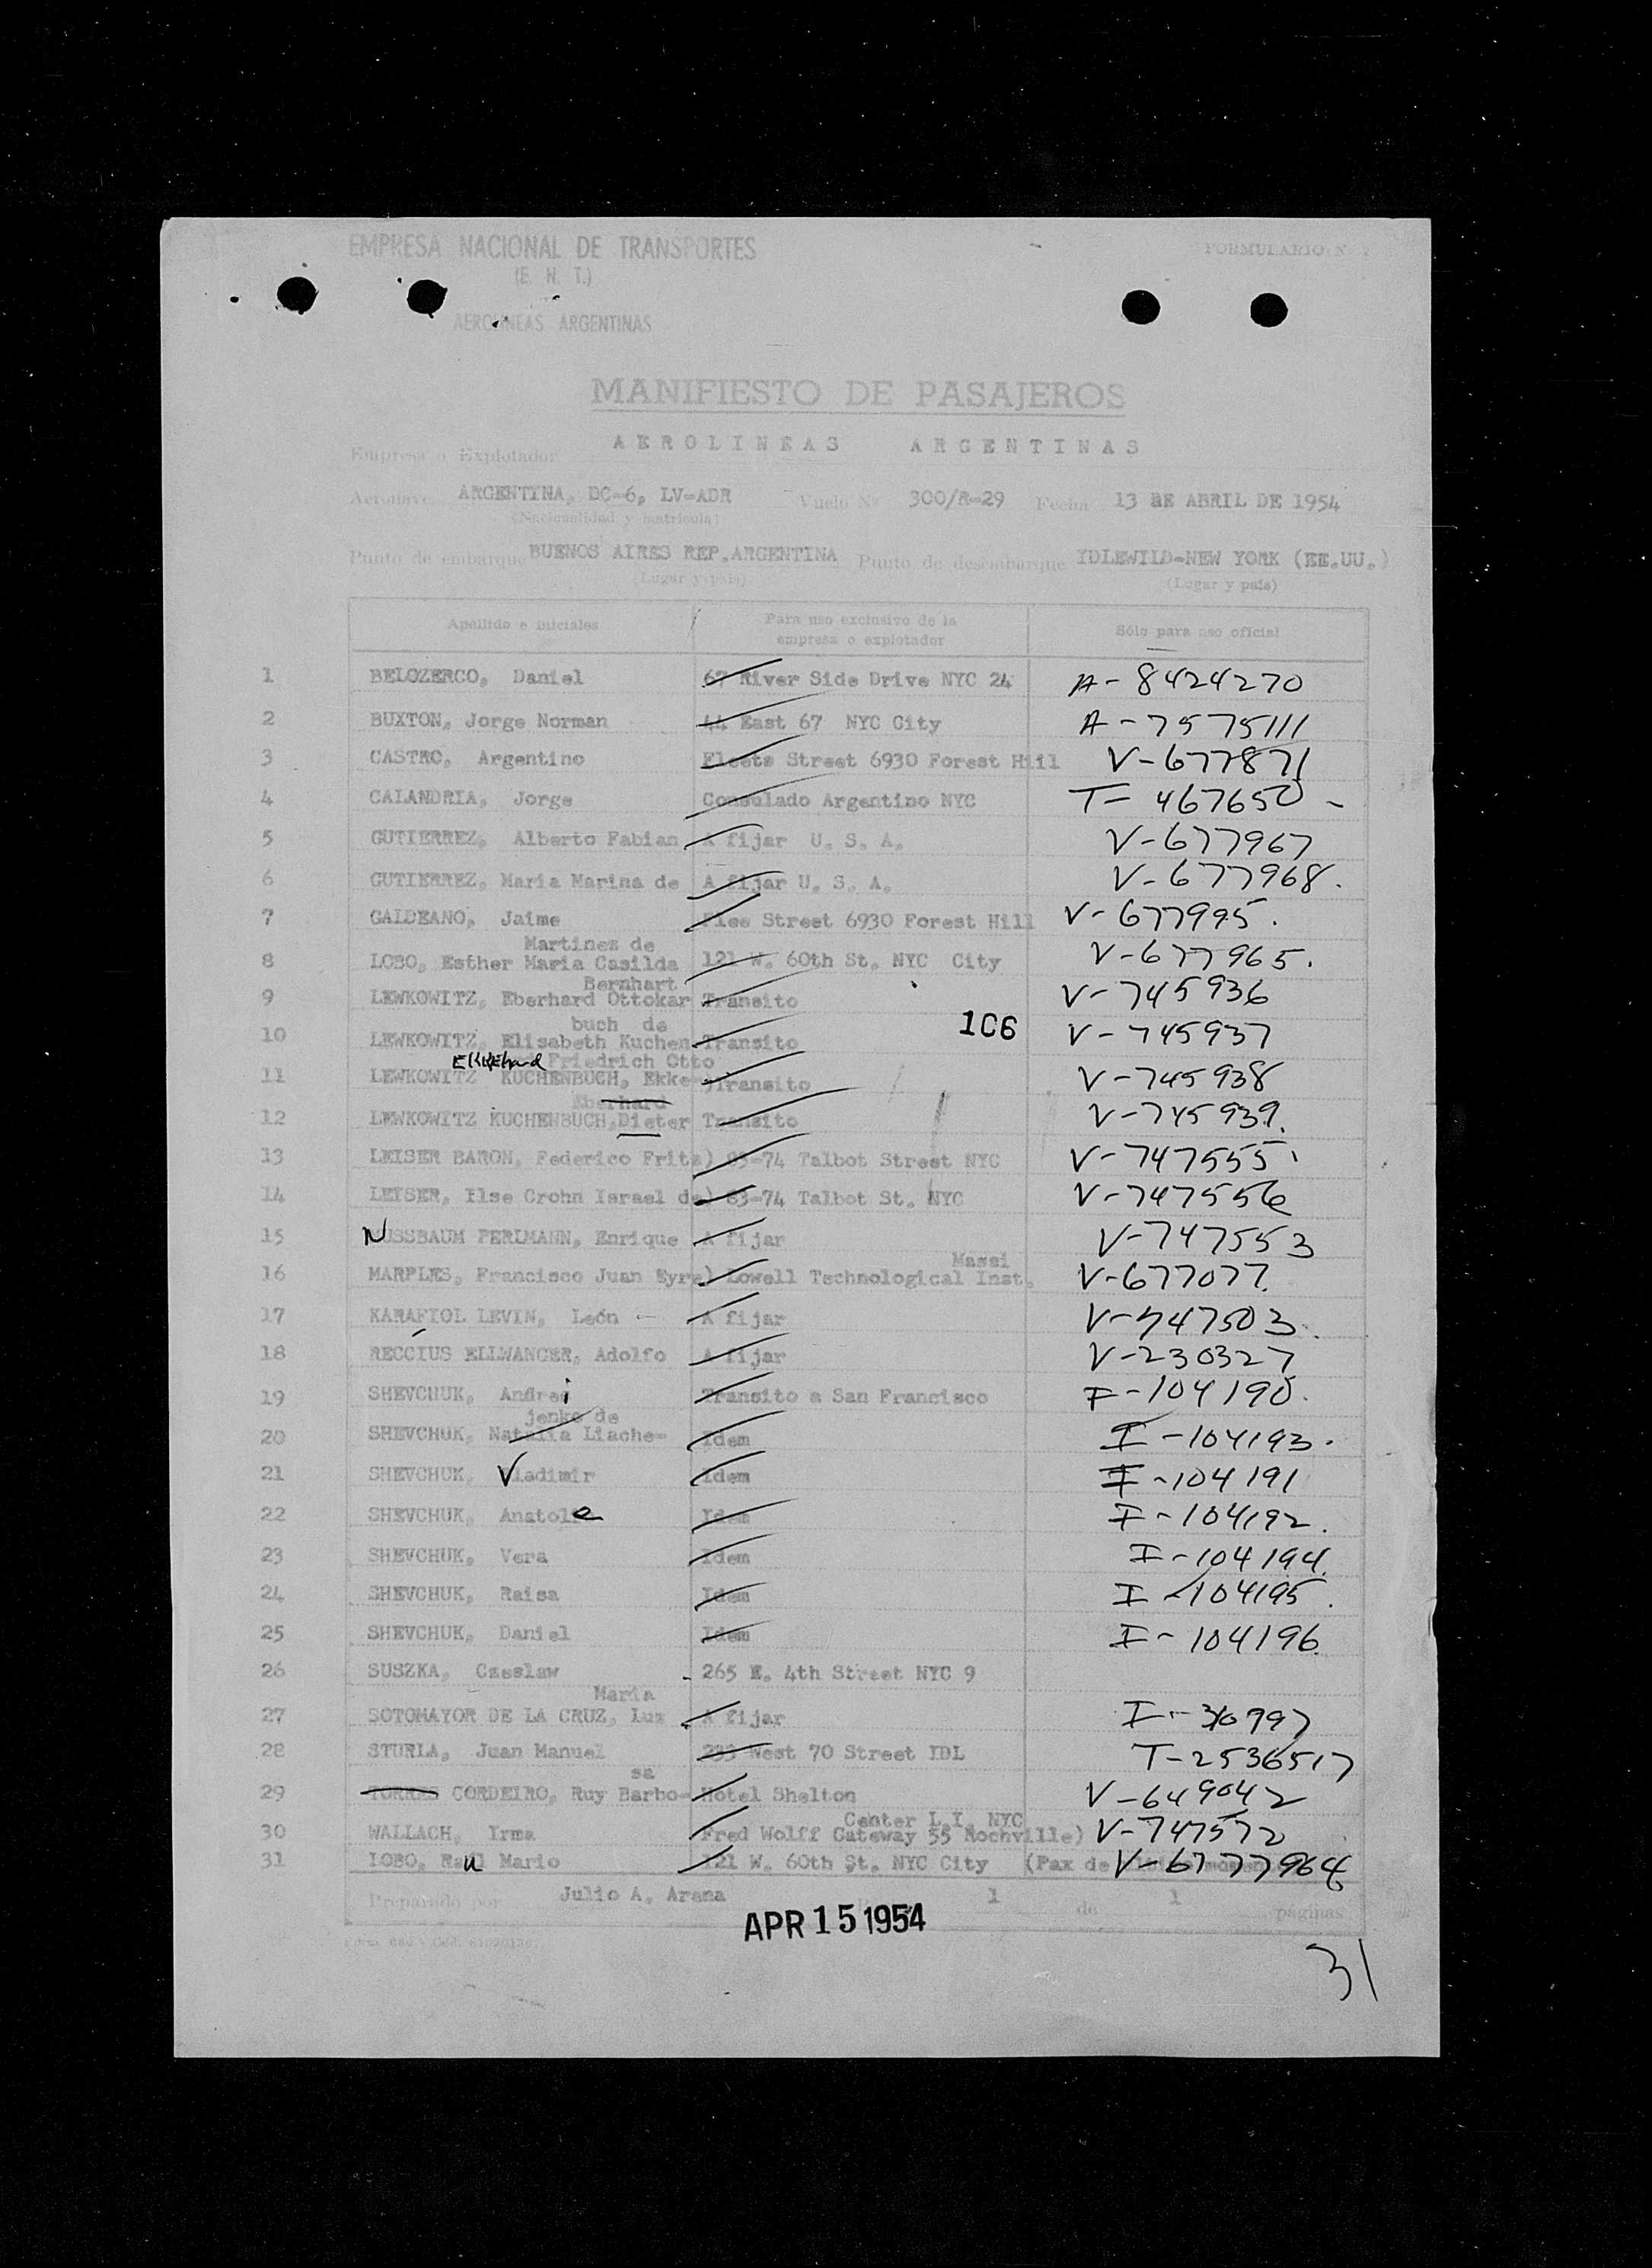 EMPRESA NACIONAL DE TRANSPORTES
FORMULARIO N°
(E. N. T.)
AEROLINEAS ARGENTINAS
MANIFIESTO DE PASAJEROS
Empresa o Explotador AEROLINEAS ARGENTINAS
Aeronave ARGENTINA, DC-6, LV-ADR Vuelo N° 300/R-29 Fecha 13 DE ABRIL DE 1954
(Nacionalidad y matrícula)
Punto de embarque BUENOS AIRES REP.ARGENTINA Punto de desembarque IDLEWILD-NEW YORK (EE.UU.)
(Lugar y país) (Lugar y país)
Apellido e iniciales Para uso exclusivo de la empresa o explotador Sólo para uso oficial
1 BELOZERCO, Daniel 67 River Side Drive NYC 24 A-8424270
2 BUXTON, Jorge Norman 44 East 67 NYC City A-7575111
3 CASTRO, Argentino Fleets Street 6930 Forest Hill V-677871
4 CALANDRIA, Jorge Consulado Argentino NYC T-467650
5 GUTIERREZ, Alberto Fabian A fijar U. S. A. V-677967
6 GUTIERREZ, Maria Marina de A fijar U. S. A. V-677968.
7 GALDEANO, Jaime Street 6930 Forest Hill V-677995.
Martinez de
8 LOBO, Esther Maria Casilda 121 W. 60th St. NYC City V-677965.
Bernhart
9 LEWKOWITZ, Eberhard Ottokar Transito V-745936
buch de 106
10 LEWKOWITZ, Elisabeth Kuchen- Transito V-745937
Ekkehard Friedrich Otto
11 LEWKOWITZ KUCHENBUCH, Ekke-)Transito V-745938
Eberhard
12 LEWKOWITZ KUCHENBUCH,Dieter Transito V-745939.
13 LEISER BARON, Federico Fritz) 83-74 Talbot Street NYC V-747555
14 LEISER, Ilse Crohn Israel de) 83-74 Talbot St. NYC V-747556
15 NUSSBAUM PERLMANN, Enrique A fijar V-747553
Massi
16 MARPLES, Francisco Juan Eyre) Lowell Technological Inst. V-677077.
17 KARAFIOL LEVIN, León A fijar V-747503.
18 RECCIUS ELLWANGER, Adolfo A fijar V-230327
19 SHEVCHUK, Andrei Transito a San Francisco I-104190.
jenko de
20 SHEVCHUK, Natalia Liache- Idem I-104193.
21 SHEVCHUK, Vladimir Idem I-104191
22 SHEVCHUK, Anatole Idem I-104192.
23 SHEVCHUK, Vera Idem I-104194.
24 SHEVCHUK, Raisa Idem I-104195.
25 SHEVCHUK, Daniel Idem I-104196.
26 SUSZKA, Czeslaw 265 E. 4th Street NYC 9
Maria
27 SOTOMAYOR DE LA CRUZ, Luz A fijar
28 STURLA, Juan Manuel 233 West 70 Street IDL T-2536517
sa
29 TORRES CORDEIRO, Ruy Barbo- Hotel Shelton V-649042
Center L.I. NYC
30 WALLACH, Irma Fred Wolff Gateway 55 Rochville) V-747572
31 LOBO, Raul Mario 121 W. 60th St. NYC City (Pax de V-6777964
Preparado por Julio A. Arana 1 de 1 páginas
APR 15 1954
31